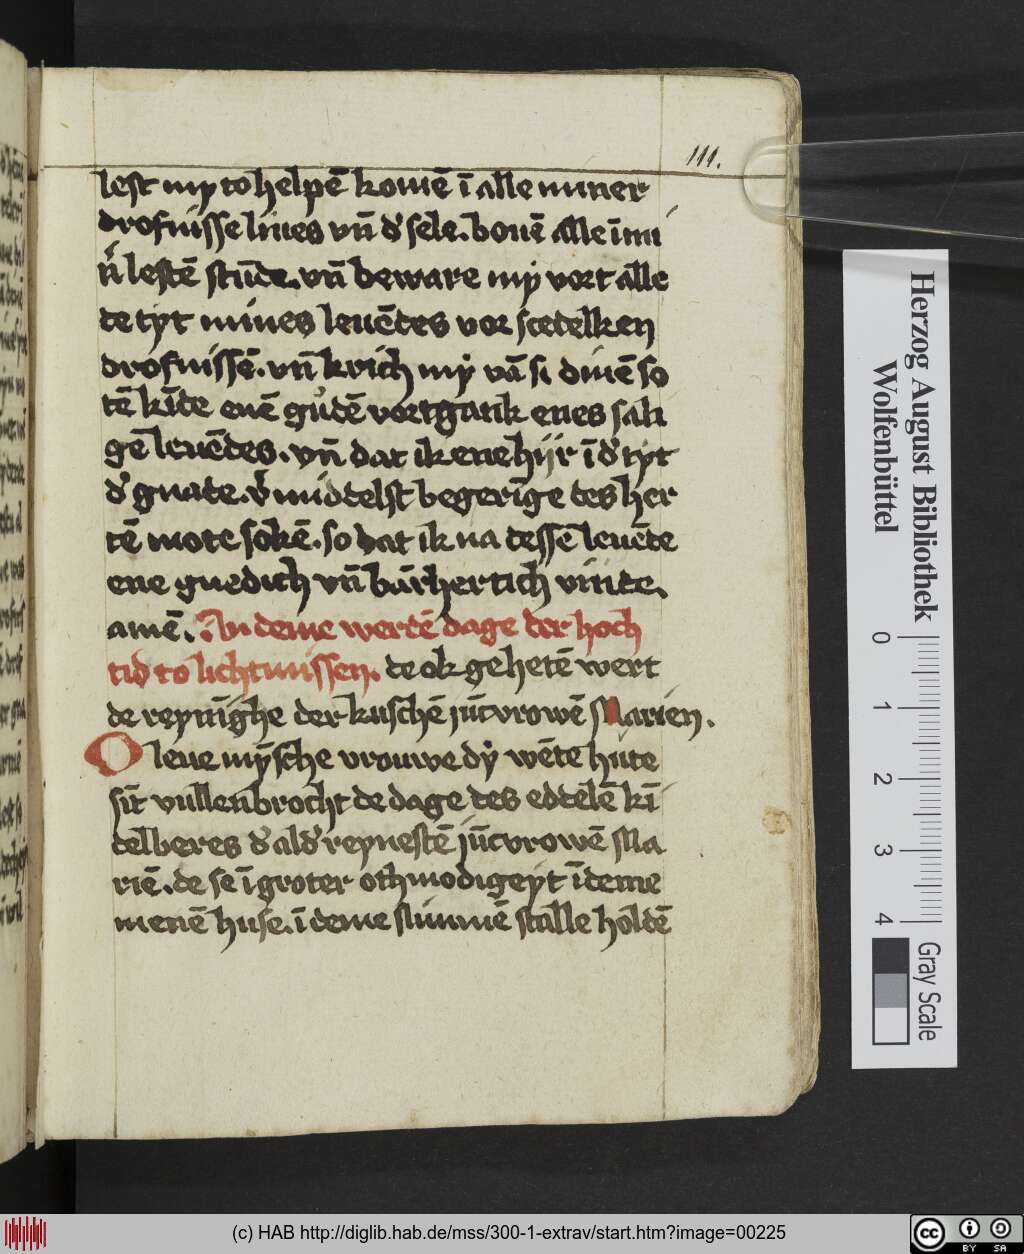 111.
lest my to helpē komē ī alle miner
drofnisse liues vn̄ d' sele. bouē alle ī mi
n' lestē stūde. vn̄ beware my vort alle
de tyt mines leuēdes vor scedelken
drofnissē. vn̄ krich my vā si dinē so
tē kīde enē gudē vortgank enes sali
gē leuēdes. vn̄ dat ik ene hijr ī d' tyt
d' gnate. v'middelst begerīge des her
tē mote sokē. so dat ik na dessē leuēde
ene gnedich vn̄ barhertich vinde.
amē. In deme werdē dage der hoch
tid to lichtmissen. de ok gehetē wert
de reynighe der kuschē jūcvrowē Marien.
O leue mysche vrouwe dy wēte hute
sīt vullenbrocht de dage des eddelē kī
delberes d' ald' reynestē jūcvrowē Ma
riē. de se ī groter othmodigeyt ī deme
menē huse. ī deme slimmē stalle holdē
Herzog August Bibliothek
Wolfenbüttel
0 1 2 3 4
Gray Scale
(c) HAB http://diglib.hab.de/mss/300-1-extrav/start.htm?image=00225
cc BY SA